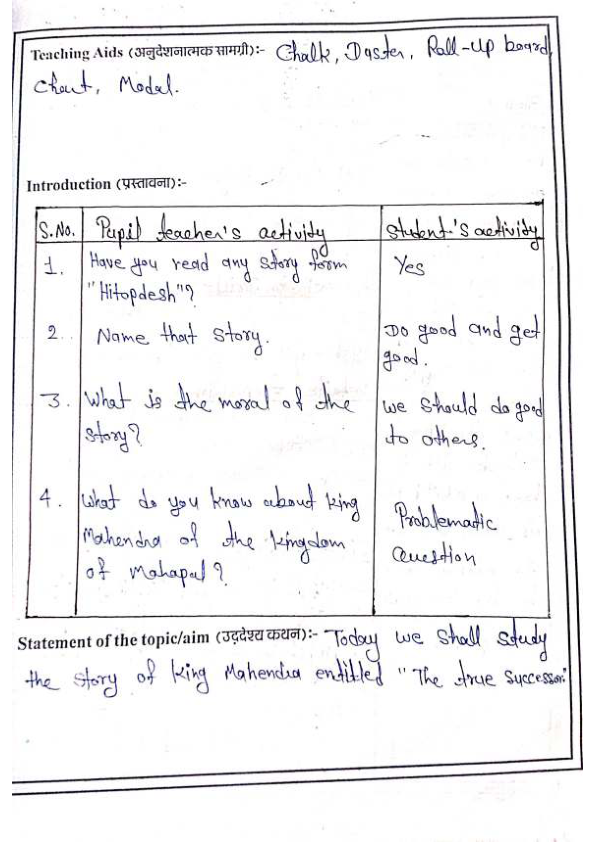 Teaching Aids (अनुदेशनात्मक सामग्री):- Chalk, Duster, Roll-Up board,
Chart, Modal.
Introduction (प्रस्तावना):-
S.No. Pupil teacher's activity Student's activity
1. Have you read any story form Yes
"Hitopdesh"?
2. Name that story. Do good and get
good.
3. What is the moral of the we should do good
story? to others.
4. What do you know about king Problematic
Mahendra of the kingdom Question
of Mahapal?
Statement of the topic/aim (उद्देश्य कथन):- Today we shall study
the story of king Mahendra entitled "The true Successor."